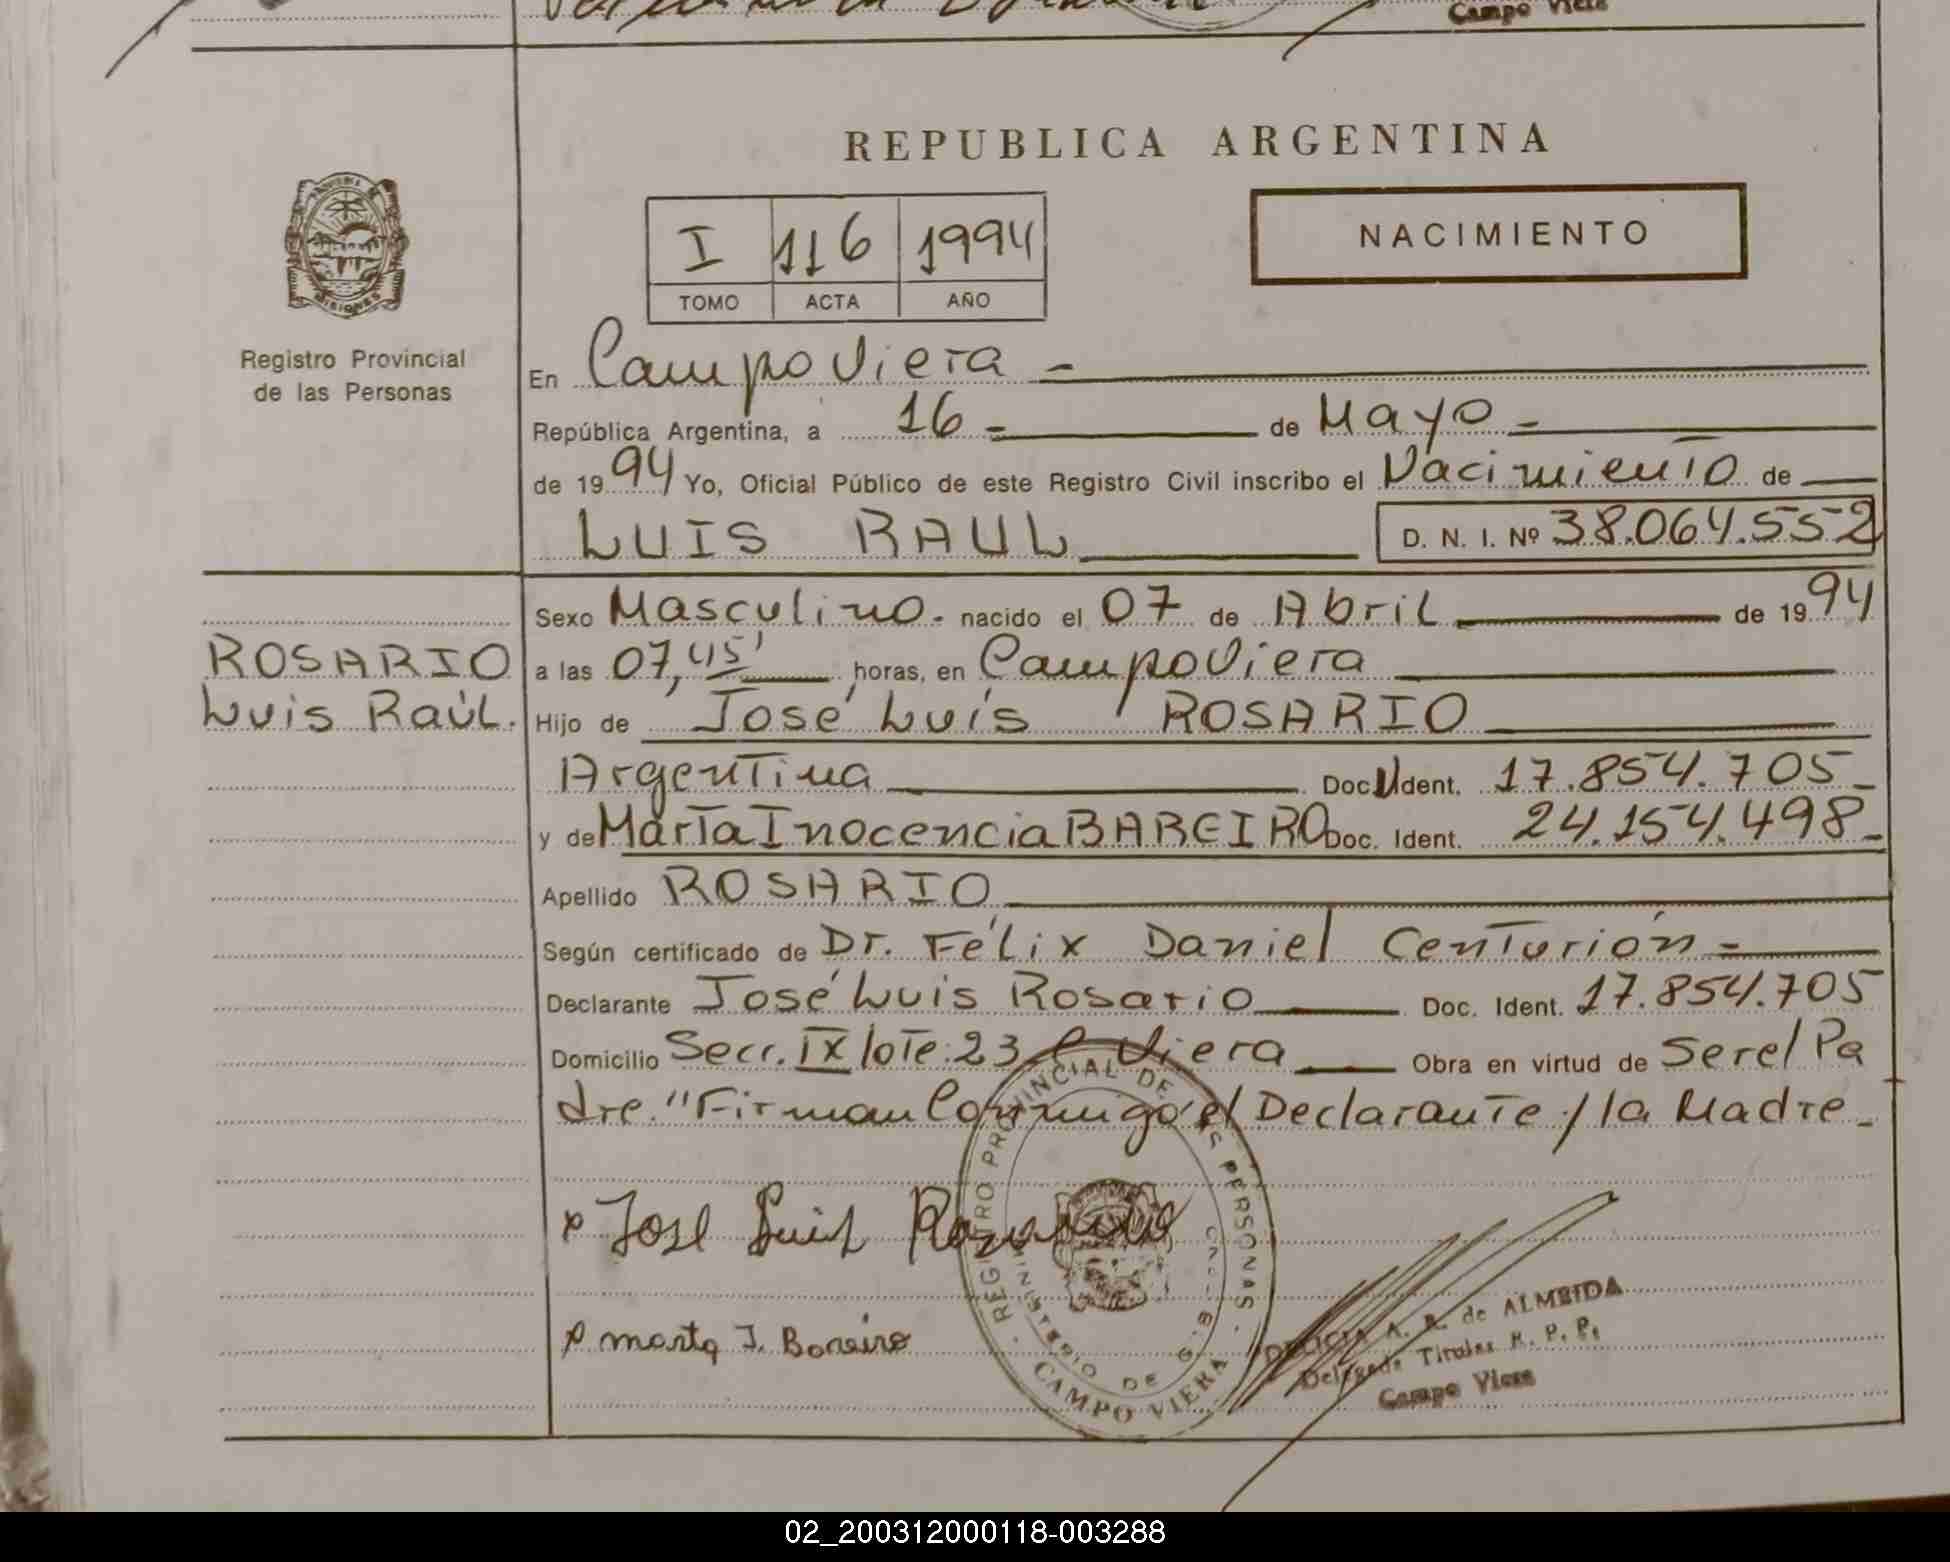 Campo Viera
REPUBLICA ARGENTINA
NACIMIENTO
I 116 1994
TOMO ACTA AÑO
MISIONES
Registro Provincial
de las Personas
En Campo Viera
República Argentina, a 16 de Mayo
de 1994 Yo, Oficial Público de este Registro Civil inscribo el Nacimiento de
LUIS RAUL D. N. I. Nº 38.064.552
Sexo Masculino. nacido el 07 de Abril de 1994
ROSARIO
Luis Raúl.
a las 07,45' horas, en Campo Viera
Hijo de José Luis ROSARIO
Argentina Doc. Ident. 17.854.705
y de Marta Inocencia BAREIRO Doc. Ident. 24.154.498
Apellido ROSARIO
Según certificado de Dr. Félix Daniel Centurión
Declarante José Luis Rosario Doc. Ident. 17.854.705
Domicilio Secc. IX lote 23 C. Viera Obra en virtud de Ser el Pa
dre. "Firman Conmigo el Declarante y la Madre
x Jose Luis Rosario
x Marta I. Bareiro
REGISTRO PROVINCIAL DE LAS PERSONAS
MINISTERIO DE GOB.
CAMPO VIERA
A. R. de ALMEIDA
Delegada Titular R. P. P.
Campo Viera
02_200312000118-003288